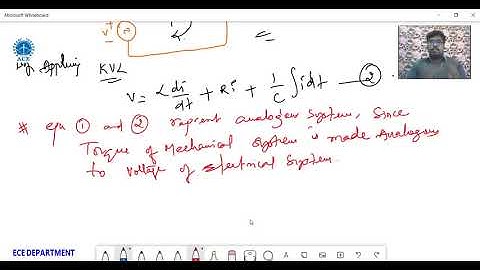 Microsoft Whiteboard
V
ACE
By Applying KVL
V = L di/dt + Ri + 1/C ∫idt — ②
# eqn ① and ② represent analogous system, since
Torque of Mechanical system is made Analogous
to voltage of electrical system
ECE DEPARTMENT